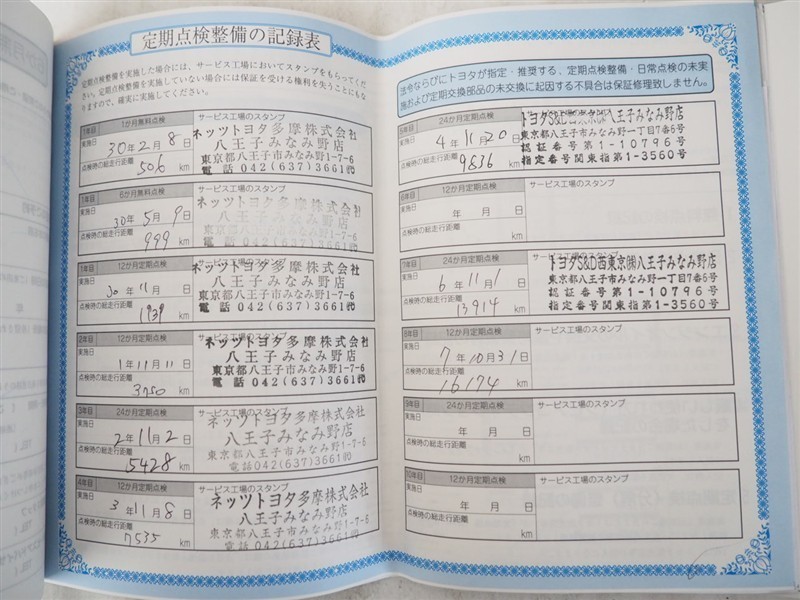 定期点検整備の記録表
定期点検整備を実施した場合には、サービス工場においてスタンプをもらってく
ださい。定期点検整備を実施していない場合には保証を受ける権利を失うことにもな
りますので、確実に実施してください。
1年目 1か月無料点検 サービス工場のスタンプ
実施日 30年2月8日
点検時の総走行距離 506 km
ネッツトヨタ多摩株式会社
八王子みなみ野店
東京都八王子市みなみ野1-7-6
電話 042(637)3661㈹
1年目 6か月無料点検 サービス工場のスタンプ
実施日 30年5月9日
点検時の総走行距離 999 km
ネッツトヨタ多摩株式会社
八王子みなみ野店
東京都八王子市みなみ野1-7-6
電話 042(637)3661㈹
1年目 12か月定期点検 サービス工場のスタンプ
実施日 30年11月 日
点検時の総走行距離 1939 km
ネッツトヨタ多摩株式会社
八王子みなみ野店
東京都八王子市みなみ野1-7-6
電話 042(637)3661㈹
2年目 12か月定期点検 サービス工場のスタンプ
実施日 1年11月11日
点検時の総走行距離 3750 km
ネッツトヨタ多摩株式会社
八王子みなみ野店
東京都八王子市みなみ野1-7-6
電話 042(637)3661㈹
3年目 24か月定期点検 サービス工場のスタンプ
実施日 2年11月2日
点検時の総走行距離 5428 km
ネッツトヨタ多摩株式会社
八王子みなみ野店
東京都八王子市みなみ野1-7-6
電話 042(637)3661㈹
4年目 12か月定期点検 サービス工場のスタンプ
実施日 3年11月8日
点検時の総走行距離 7535 km
ネッツトヨタ多摩株式会社
八王子みなみ野店
東京都八王子市みなみ野1-7-6
電話 042(637)3661㈹
法令ならびにトヨタが指定・推奨する、定期点検整備・日常点検の未実
施および定期交換部品の未交換に起因する不具合は保証修理致しません。
5年目 24か月定期点検 サービス工場のスタンプ
実施日 4年11月20日
点検時の総走行距離 9836 km
トヨタS&D西東京㈱八王子みなみ野店
東京都八王子市みなみ野一丁目7番6号
認証番号第1-10796号
指定番号関東指第1-3560号
6年目 12か月定期点検 サービス工場のスタンプ
実施日 年 月 日
点検時の総走行距離 km
7年目 24か月定期点検 サービス工場のスタンプ
実施日 6年11月1日
点検時の総走行距離 13914 km
トヨタS&D西東京㈱八王子みなみ野店
東京都八王子市みなみ野一丁目7番6号
認証番号第1-10796号
指定番号関東指第1-3560号
8年目 12か月定期点検 サービス工場のスタンプ
実施日 7年10月31日
点検時の総走行距離 16174 km
9年目 24か月定期点検 サービス工場のスタンプ
実施日 年 月 日
点検時の総走行距離 km
10年目 12か月定期点検 サービス工場のスタンプ
実施日 年 月 日
点検時の総走行距離 km